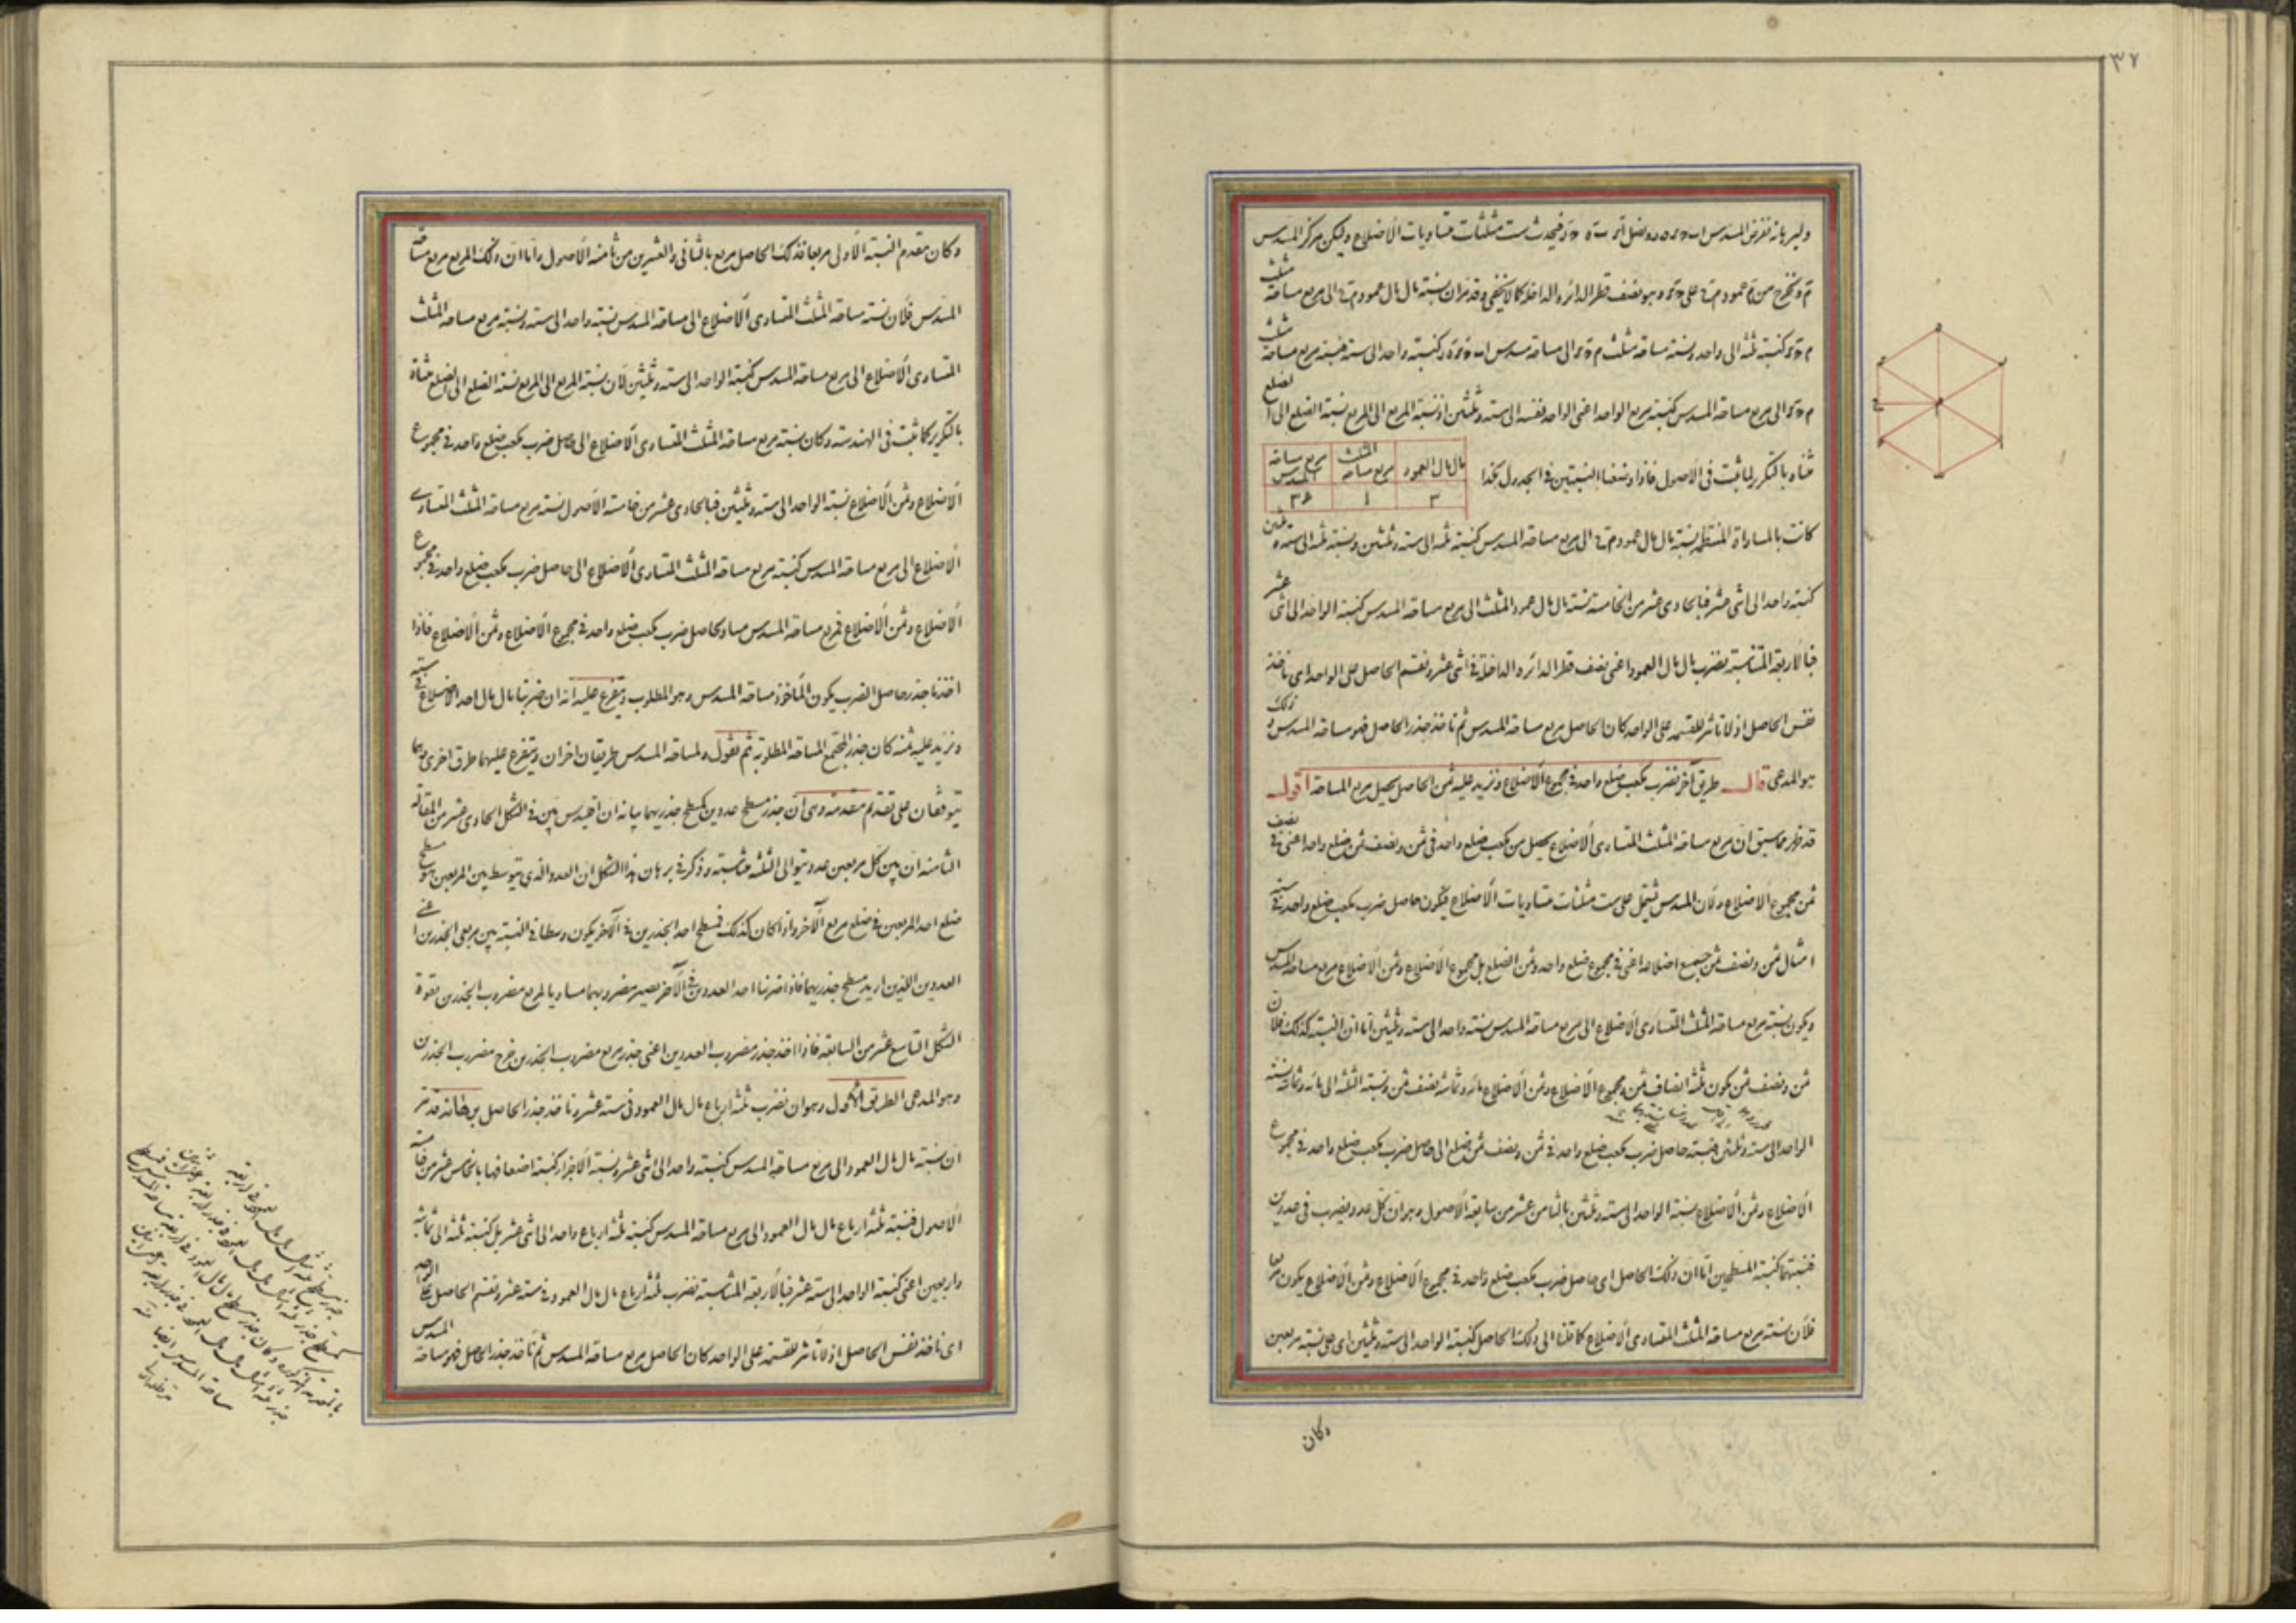 ٣٧
ولبرهانه نفرض المسدس ونصل فيحدث ست مثلثات متساويات الأضلاع وليكن مركز المسدس
م ونخرج من م عمود على وهو نصف قطر الدائرة الداخلة كما لا يخفى وقد مر ان نسبة مال مال عمود الى مربع مساحة مثلث
كنسبة ثلثه الى واحد ونسبة مساحة مثلث الى مساحة مسدس كنسبة واحد الى سته فنسبة مربع مساحة مثلث
الى مربع مساحة المسدس كنسبة مربع الواحد اعنى الواحد نفسه الى سته وثلثين اذ نسبة المربع الى المربع نسبة الضلع الى الضلع
مثناه بالتكرير لما ثبت فى الأصول فاذا وضعنا النسبتين فى الجدول هكذا
مال مال العمود مربع مساحة المثلث مربع مساحة المسدس
٣ ١ ٣٦
كانت بالمساواة المنتظمة نسبة مال مال عمود الى مربع مساحة المسدس كنسبة ثلثه الى سته وثلثين ونسبة ثلثه الى سته وثلثين
كنسبة واحد الى اثنى عشر فبالحادى عشر من الخامسة نسبة مال مال عمود المثلث الى مربع مساحة المسدس كنسبة الواحد الى اثنى عشر
فبالأربعة المتناسبة نضرب مال مال العمود اعنى نصف قطر الدائرة الداخلة فى اثنى عشر ونقسم الحاصل على الواحد اى نأخذ
نفس الحاصل اذ لا تاثير للقسمة على الواحد كان الحاصل مربع مساحة المسدس ثم نأخذ جذر الحاصل فهو مساحة المسدس وذلك
هو المدعى قال طريق آخر نضرب مكعب ضلع واحد فى مجموع الأضلاع ونزيد عليه ثمن الحاصل يحصل مربع المساحة اقول
قد ظهر مما سبق ان مربع مساحة المثلث المتساوى الأضلاع يحصل من مكعب ضلع واحد فى ثمن ونصف ثمن ضلع واحد اعنى فى نصف
ثمن مجموع الأضلاع ولان المسدس يشتمل على ست مثلثات متساويات الأضلاع فيكون حاصل ضرب مكعب ضلع واحد فى سته
امثال ثمن ونصف ثمن جميع اضلاعه اعنى فى مجموع ضلع واحد وثمن الضلع بل مجموع الأضلاع وثمن الأضلاع مربع مساحة المسدس
ويكون نسبة مربع مساحة المثلث المتساوى الأضلاع الى مربع مساحة المسدس نسبة واحد الى سته وثلثين اما ان النسبة كذلك فلان
ثمن ونصف ثمن يكون ثلثه انصاف ثمن ومجموع الأضلاع وثمن الأضلاع مائه وثمانية نصف ثمن ونسبة الثلثه الى مائه وثمانية نسبة
الواحد الى سته وثلثين فنسبة حاصل ضرب مكعب ضلع واحد فى ثمن ونصف ثمن ضلع الى حاصل ضرب مكعب ضلع واحد فى مجموع
الأضلاع وثمن الأضلاع نسبة الواحد الى سته وثلثين بالثامن عشر من سابعة الأصول وهو ان كل عدد يضرب فى عددين
فنسبتهما كنسبة المسطحين اما ان ذلك الحاصل اى حاصل ضرب مكعب ضلع واحد فى مجموع الأضلاع وثمن الأضلاع يكون مربعا
فلان نسبة مربع مساحة المثلث المتساوى الأضلاع كما قلنا الى ذلك الحاصل كنسبة الواحد الى سته وثلثين اى على نسبة مربعين
وكان
وكان مقدم النسبة الأولى مربعا فذلك الحاصل مربع بالثانى والعشرين من ثامنة الأصول واما ان ذلك المربع مربع مساحة
المسدس فلان نسبة مساحة المثلث المتساوى الأضلاع الى مساحة المسدس نسبة واحد الى سته ونسبة مربع مساحة المثلث
المتساوى الأضلاع الى مربع مساحة المسدس كنسبة الواحد الى سته وثلثين لان نسبة المربع الى المربع نسبة الضلع الى الضلع مثناة
بالتكرير كما ثبت فى الهندسة وكان نسبة مربع مساحة المثلث المتساوى الأضلاع الى حاصل ضرب مكعب ضلع واحد فى مجموع
الأضلاع وثمن الأضلاع نسبة الواحد الى سته وثلثين فبالحادى عشر من خامسة الأصول نسبة مربع مساحة المثلث المتساوى
الأضلاع الى مربع مساحة المسدس كنسبة مربع مساحة المثلث المتساوى الأضلاع الى حاصل ضرب مكعب ضلع واحد فى مجموع
الأضلاع وثمن الأضلاع فمربع مساحة المسدس مساو لحاصل ضرب مكعب ضلع واحد فى مجموع الأضلاع وثمن الأضلاع فاذا
اخذنا جذر حاصل الضرب يكون المأخوذ مساحة المسدس وهو المطلوب ويتفرع عليه انه ان ضربنا مال مال احد الأضلاع فى سته
ونزيد عليه ثمنه كان جذر المجتمع المساحة المطلوبة ثم نقول ولمساحة المسدس طريقان اخران ويتفرع عليهما طرق اخرى وهما
يتوقفان على تقديم مقدمة وهى ان جذر مسطح عددين كمسطح جذريهما بيانه ان اقليدس بين فى الشكل الحادى عشر من المقالة
الثامنة ان بين كل مربعين عدد يتوالى الثلثه متناسبة وذكر فى برهان هذا الشكل ان العدد الذى يتوسط بين المربعين هو مسطح
ضلع احد المربعين فى ضلع مربع الآخر واذا كان كذلك فمسطح احد الجذرين فى الآخر يكون وسطا فى النسبة بين مربعى الجذرين اعنى
العددين اللذين اريد مسطح جذريهما فاذا ضربنا احد العددين فى الآخر يصير مضروبهما مساويا لمربع مضروب الجذرين بقوة
الشكل التاسع عشر من السابعة فاذا اخذ جذر مضروب العددين اعنى جذر مربع مضروب الجذرين خرج مضروب الجذرين
وهو المدعى الطريق الأول وهو ان نضرب ثلثه ارباع مال مال العمود فى سته عشر ونأخذ جذر الحاصل برهانه قد مر
ان نسبة مال مال العمود الى مربع مساحة المسدس كنسبة واحد الى اثنى عشر ونسبة الأجزاء كنسبة اضعافها بالخامس عشر من خامسة
الأصول فنسبة ثلثه ارباع مال مال العمود الى مربع مساحة المسدس كنسبة ثلثه ارباع واحد الى اثنى عشر بل كنسبة ثلثه الى ثمانية
واربعين اعنى كنسبة الواحد الى سته عشر فبالأربعة المتناسبة نضرب ثلثه ارباع مال مال العمود فى سته عشر ونقسم الحاصل على الواحد
اى نأخذ نفس الحاصل اذ لا تاثير للقسمة على الواحد كان الحاصل مربع مساحة المسدس ثم نأخذ جذر الحاصل فهو مساحة المسدس